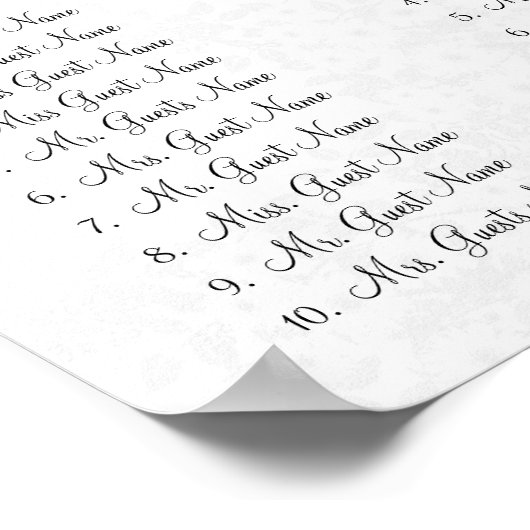 Name
Guest Name
Guest Name
Miss Guest Name
. Mr. Guests Name
6. Mrs. Guest Name
7. Mr. Guest Name
8. Miss. Guest Name
9. Mr. Guest Name
10. Mrs. Guests
4.
5.
6.